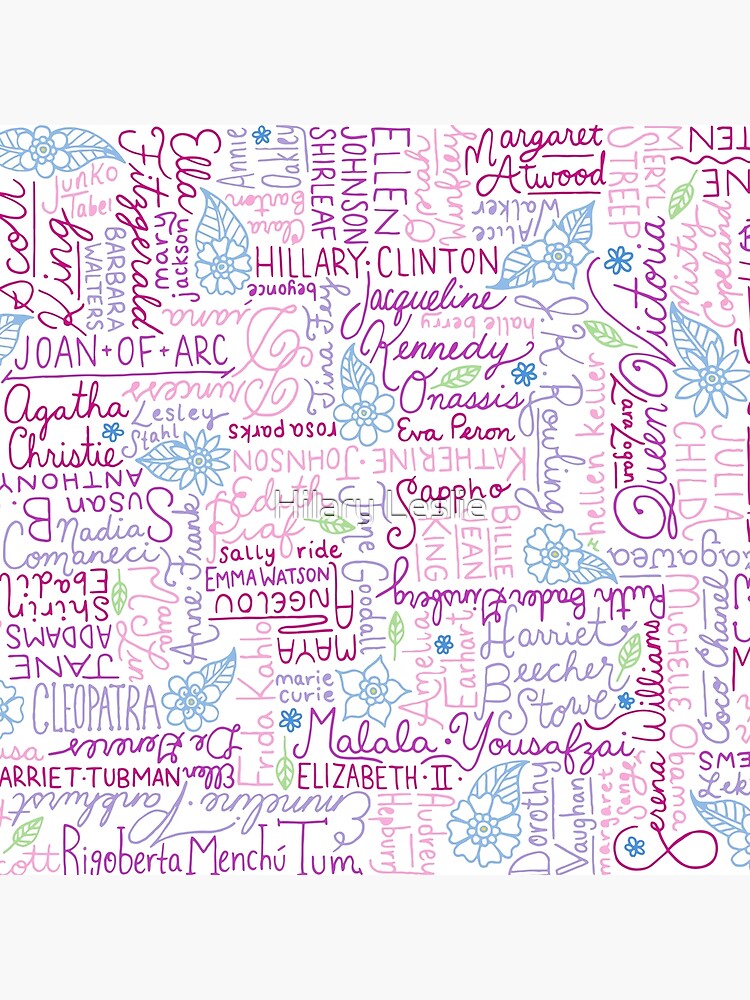 Scott
King
Junko
Tabei
BARBARA
WALTERS
Ella
Fitzgerald
mary
jackson
Annie
Oakley
Clara
Barton
ELLEN
JOHNSON
SHIRLEAF
Oprah
Winfrey
Margaret
Atwood
Alice
Walker
MERYL
STREEP
Misty
Copeland
HILLARY·CLINTON
beyoncé
Tina Fey
Jacqueline
Kennedy
Onassis
halle berry
J K Rowling
Queen Victoria
Lara Logan
JULIA
CHILD
JOAN+OF+ARC
Princess
Diana
Agatha
Christie
Lesley
Stahl
rosa parks
Eva Peron
KATHERINE JOHNSON
hellen keller
SUSAN
B.
ANTHONY
Nadia
Comaneci
Anne Frank
Edith
Piaf
Hillary Leslie
Jane Goodall
Sappho
BILLIE
JEAN
KING
Sacagawea
sally ride
EMMA WATSON
MAYA
ANGELOU
Ruth Bader Ginsberg
Shirin
Ebadi
JANE
ADDAMS
CLEOPATRA
Frida Kahlo
marie
curie
Amelia
Earhart
Harriet
Beecher
Stowe
Serena Williams
MICHELLE Obama
Coco Chanel
Ellen
DeGeneres
Malala·Yousafzai
ARRIET·TUBMAN
ELIZABETH·II·
Emmeline Pankhurst
Audrey
Hepburn
Dorothy
Vaughan
margaret
Sanger
cott
Rigoberta Menchú Tum